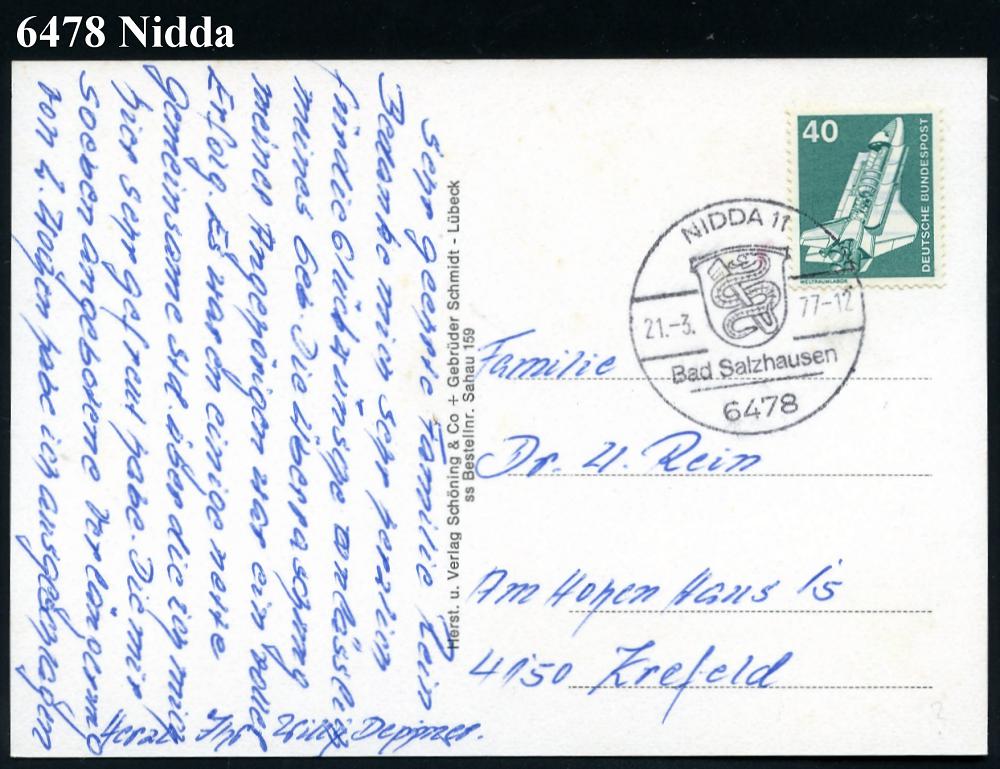 6478 Nidda
Sehr geehrte Familie Rein
Bedanke mich sehr herzlich
für die Glückwünsche anlässlig
meines Geb. Die Überraschung
meiner Angehörigen war ein voller
Erfolg. Es waren einige nette
Gemeinsame Std. über die ich mich
hier sehr gefreut habe. Die mir
soeben angebotene Verlängerung
von 2. Wochen habe ich ausgeschlagen
Herzl. Ihr Willy Deppner.
Herst. u. Verlag Schöning & Co + Gebrüder Schmidt - Lübeck
ss Bestellnr. Sahau 159
40
DEUTSCHE BUNDESPOST
WELTRAUMLABOR
NIDDA 11
21.-3. 77-12
Bad Salzhausen
6478
Familie
Dr. U. Rein
Am Hohen Haus 15
4150 Krefeld